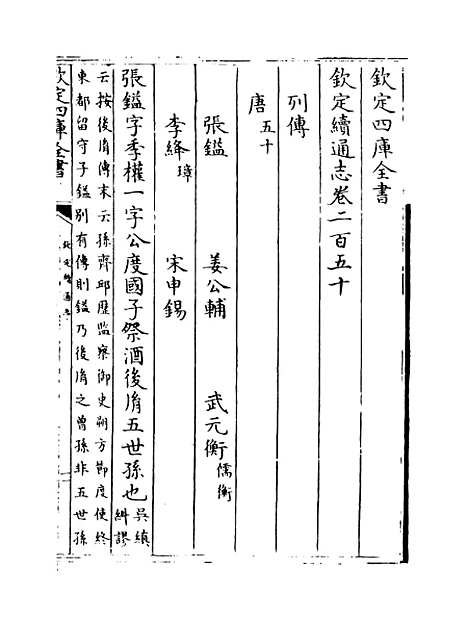 欽定四庫全書
欽定續通志卷二百五十
列傳
唐五十
張鎰 姜公輔 武元衡儒衡
李絳璋 宋申錫
張鎰字季權一字公度國子祭酒後胤五世孫也吳縝糾謬
云按後胤傳末云孫齊邱歷監察御史朔方節度使終
東都留守子鎰別有傳則鎰乃後胤之曾孫非五世孫
欽定四庫全書
欽定續通志